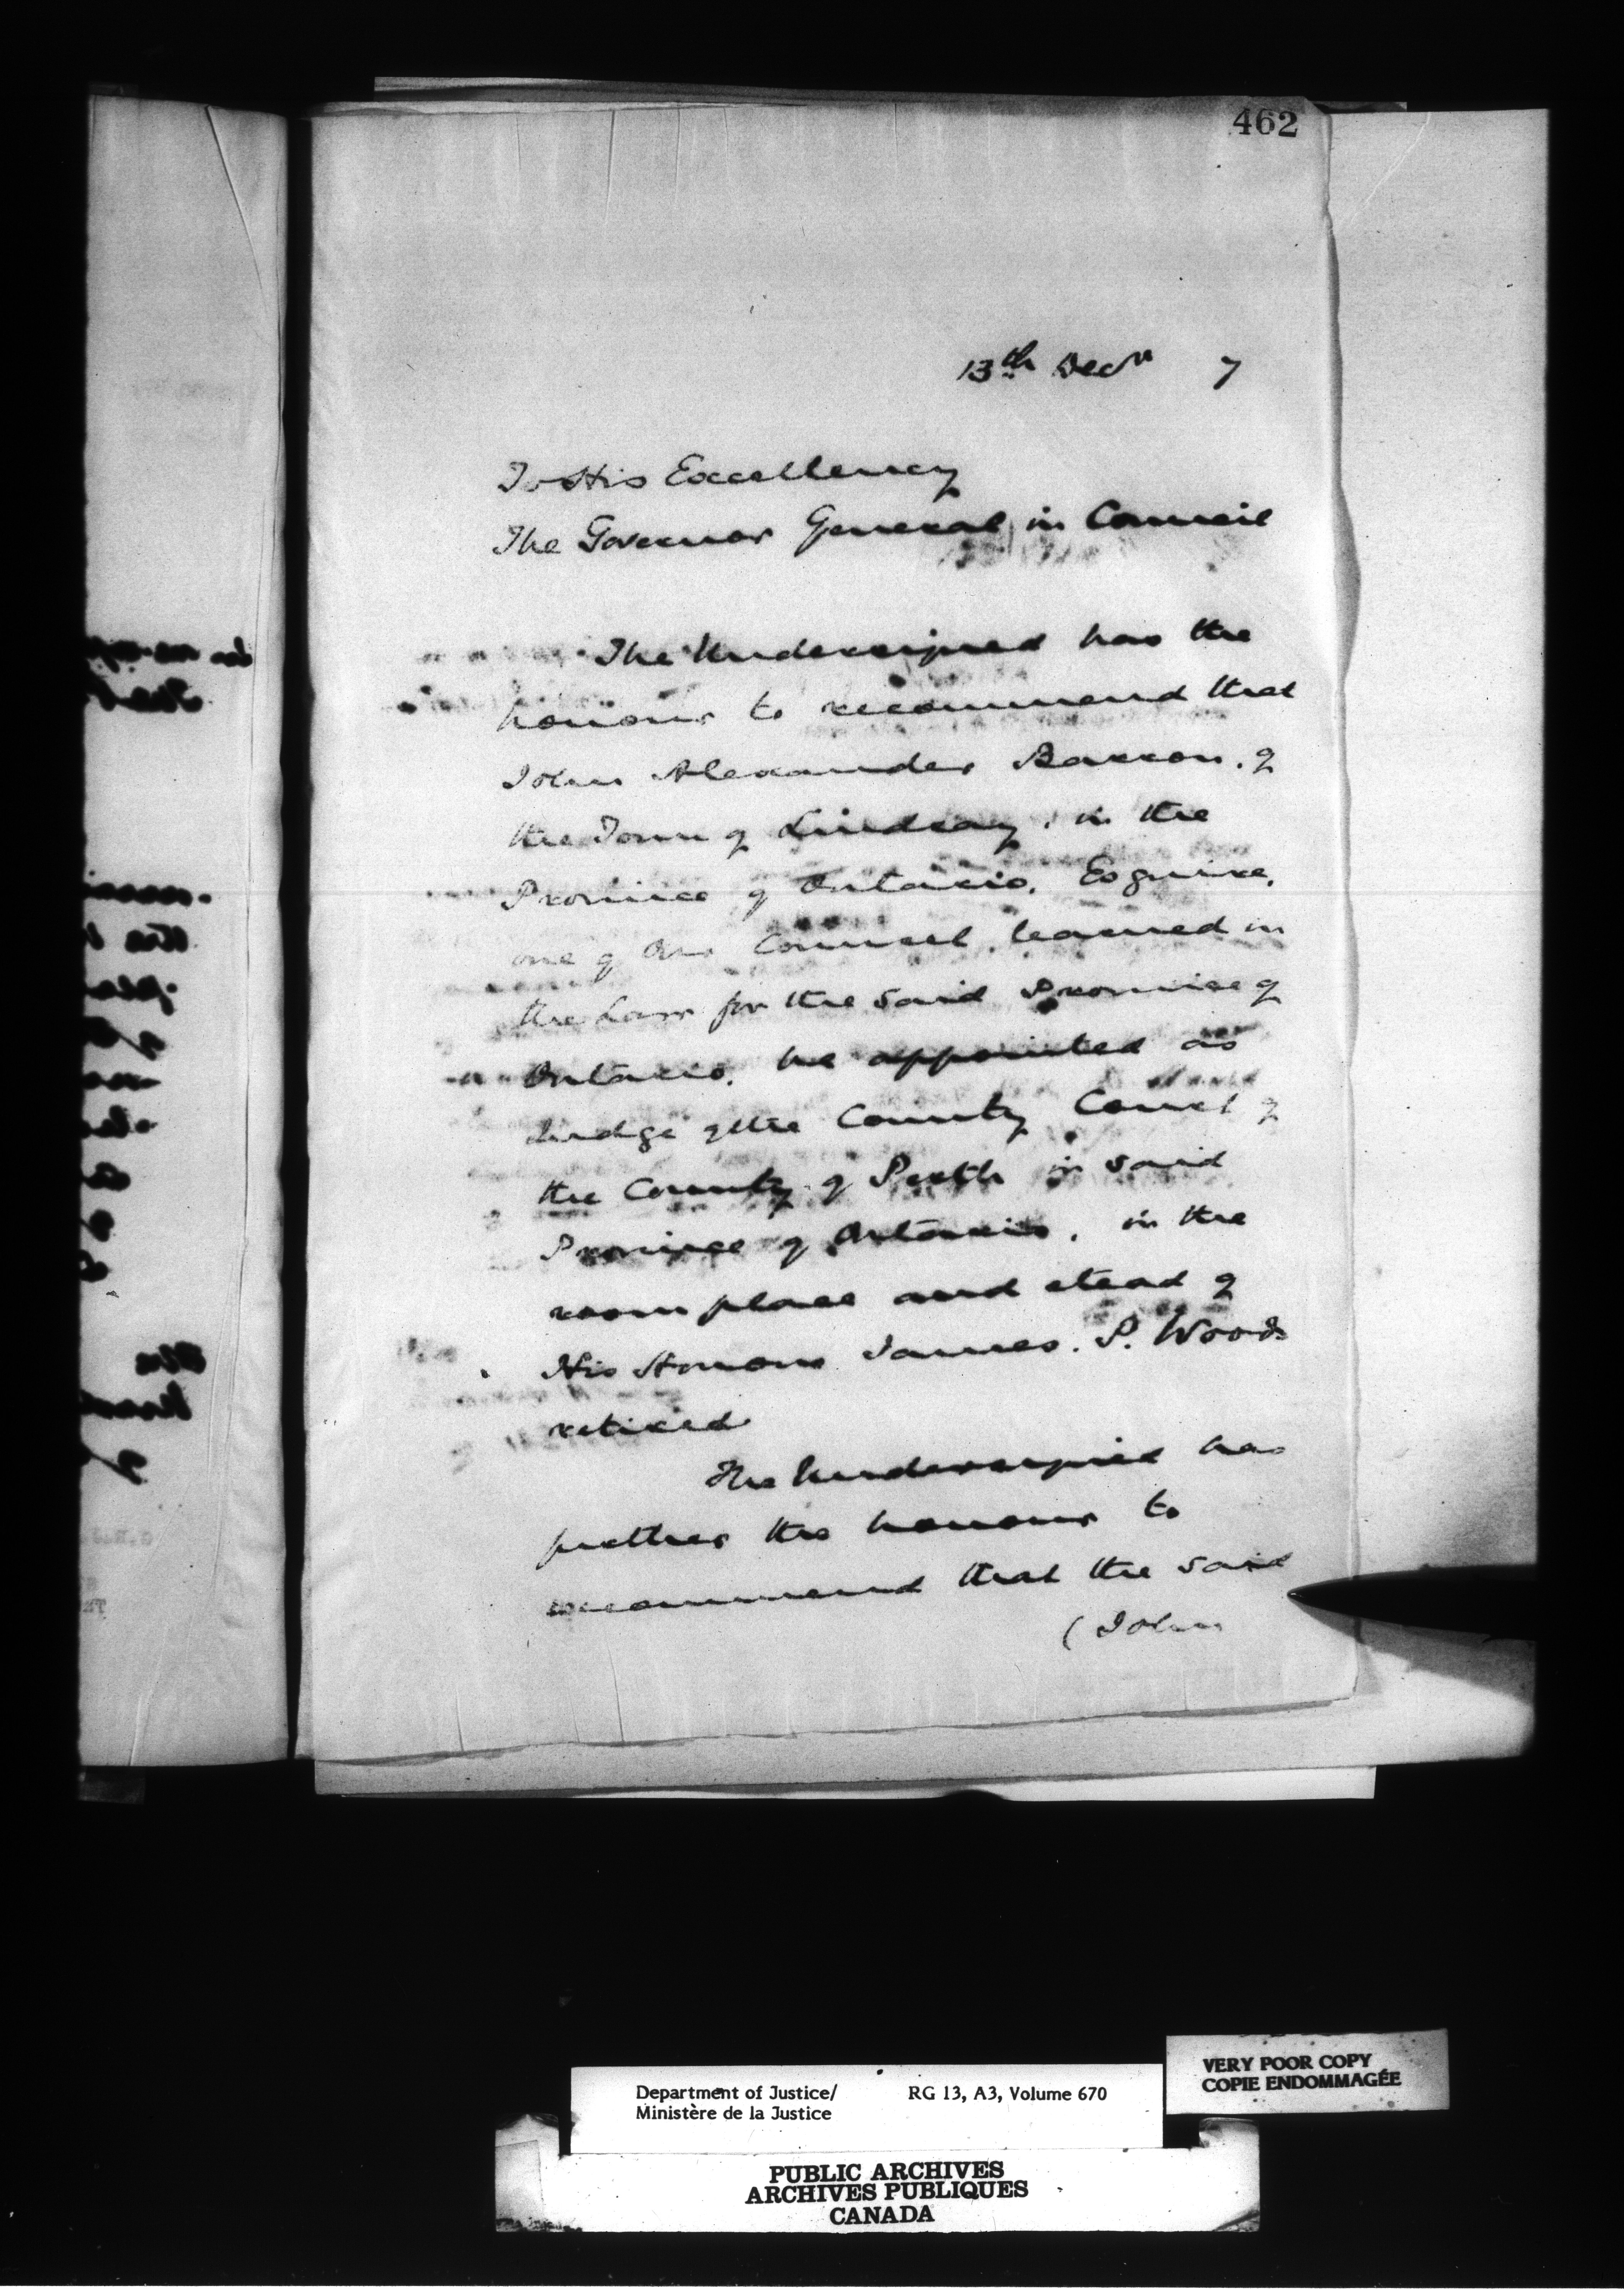 462
13th Decr 7
To His Excellency
The Governor General in Council
The Undersigned has the
honour to recommend that
John Alexander Barron, of
the Town of Lindsay, in the
Province of Ontario, Esquire,
one of Our Counsel learned in
the Law for the said Province of
Ontario, be appointed as
Judge of the County Court of
the County of Perth in said
Province of Ontario, in the
room place and stead of
His Honour James. P. Woods
retired
The Undersigned has
further the honour to
recommend that the said
(John
Department of Justice/ RG 13, A3, Volume 670
Ministère de la Justice
VERY POOR COPY
COPIE ENDOMMAGÉE
PUBLIC ARCHIVES
ARCHIVES PUBLIQUES
CANADA